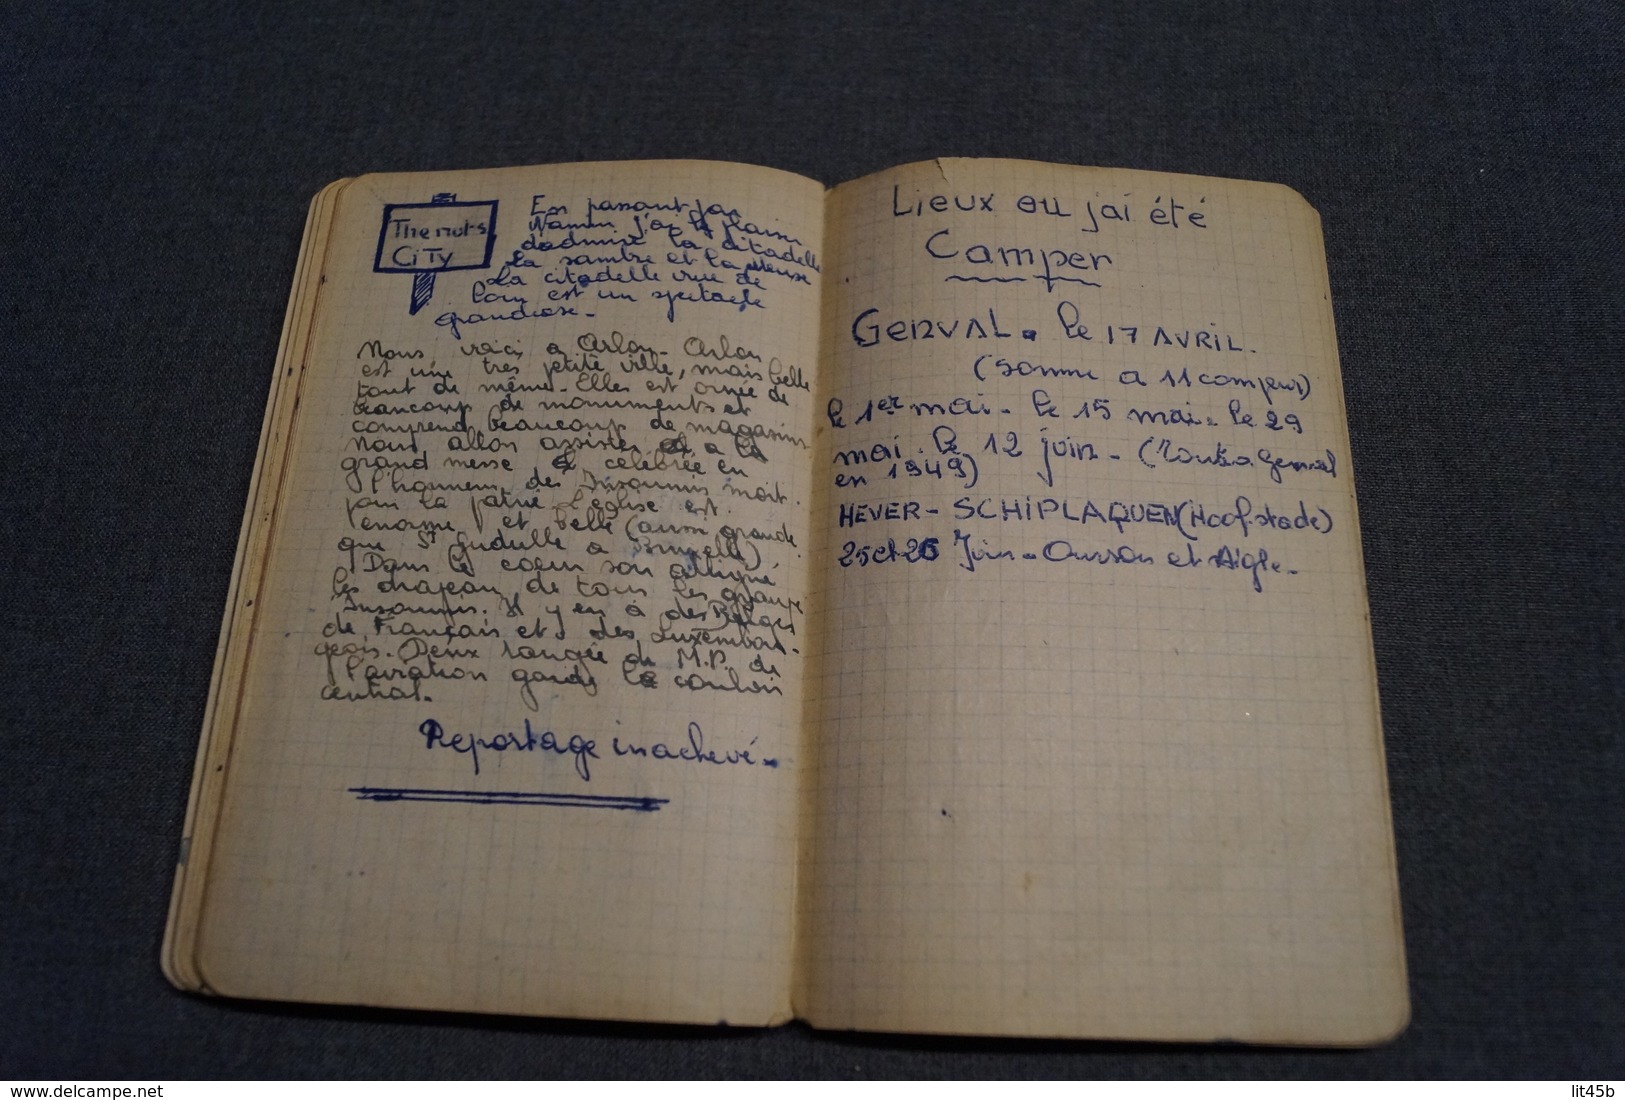 The nuts
CiTy
En passant par
Namur j'ai le plaisir
d'admiré la citadelle
La sambre et la Meuse
La citadelle vue de
loin est un spectacle
grandiose -
Nous voici a Arlon - Arlon
est une très petite ville, mais belle
tout de même - Elles est ornée de
beaucoup de monuments et
comprend beaucoup de magasins
Nous allon assister a la
grand messe célébrée en
l'honneur des Insoumis mort
pour la patrie - L'église est
enorme et belle (aussi grande
que St Gudulle a Bruxelle)
Dans le coeur son alligné
les drapeau de tous les groupe
Insoumis. Il y en à des Belges
de Français et des Luxembour-
geois. Deux rangée de M.P. de
l'aviation garde le couloir
central.
Reportage inachevé -
Lieux ou j'ai été
Camper
GENVAL. le 17 AVRIL.
(somme a 11 campeurs)
le 1er mai - le 15 mai - le 29
mai. le 12 juin - ( Genval
en 1949)
HEVER - SCHIPLAQUEN (Hoofstade)
25 et 26 Juin - Ourson et Aigle -
delcampe.net
lit45b